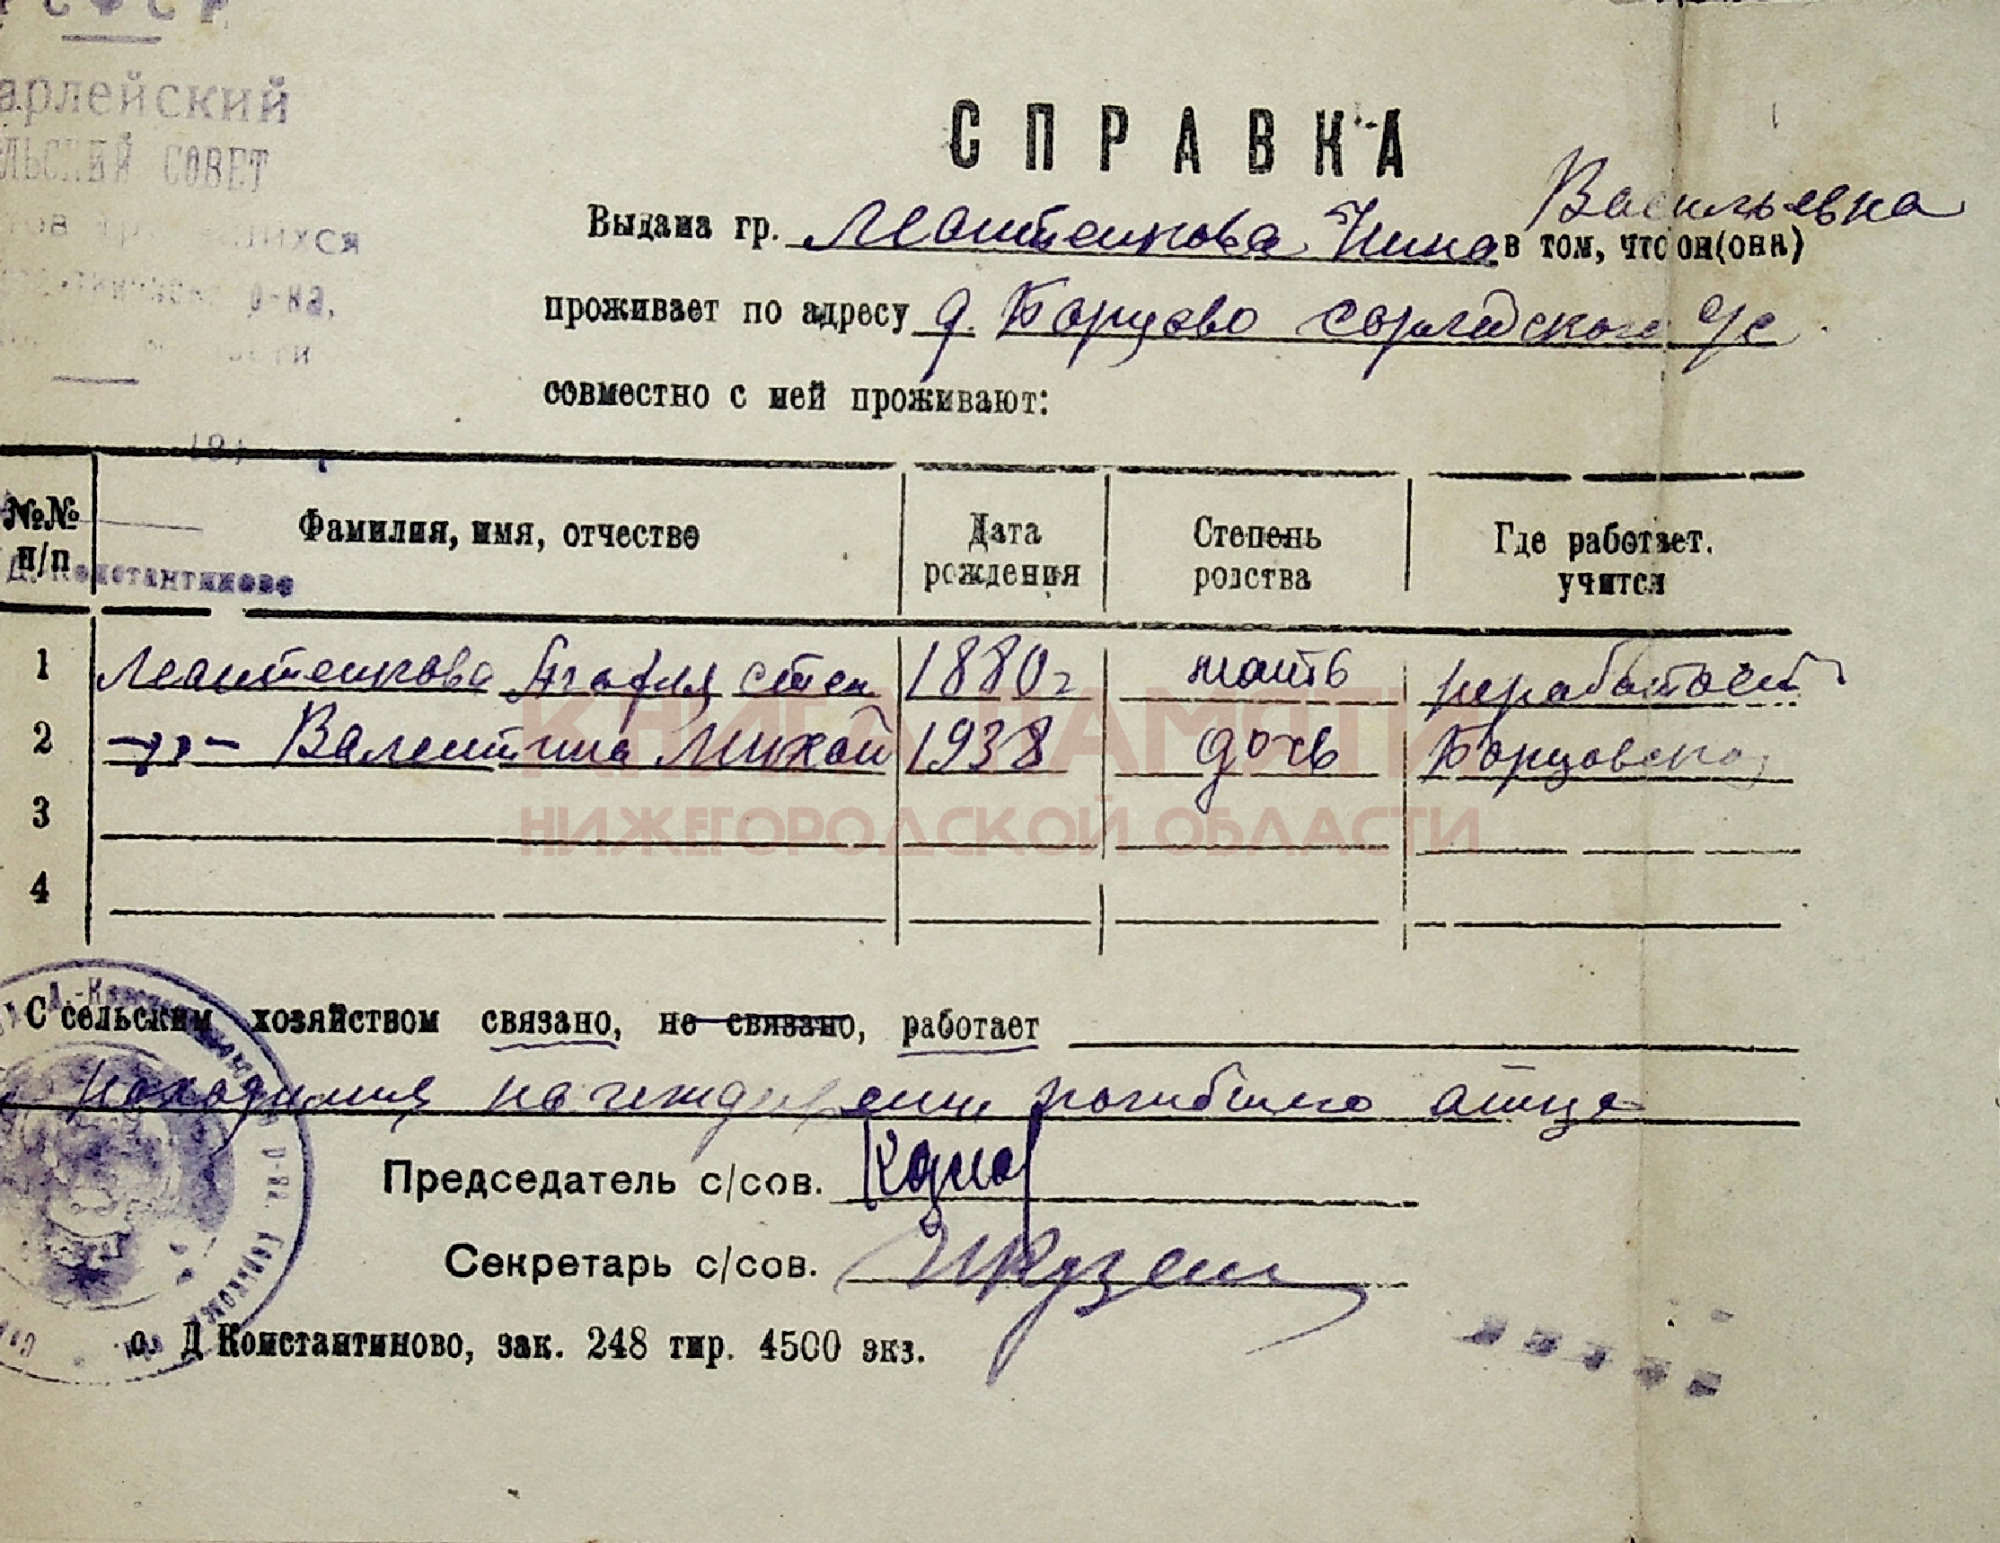 РСФСР
арлейский
ЛЬСКИЙ СОВЕТ
р-на,
Д. Константиново
СПРАВКА
Васильевна
Выдана гр. Маитенкова Нина в том, что он(она)
проживает по адресу д. Борцово сарлейского с/с
совместно с ней проживают:
№№ п/п Фамилия, имя, отчество Дата рождения Степень родства Где работает. учится
1 Маитенкова Агафия степ 1880г мать неработает
2 —„— Валентина Михай 1938 дочь Борцовская
3
4
С сельским хозяйством связано, не связано, работает
находится на иждивении погибшего отца
Председатель с/сов.
Секретарь с/сов.
с. Д Константиново, зак. 248 тир. 4500 экз.
КНИГА ПАМЯТИ
НИЖЕГОРОДСКОЙ ОБЛАСТИ